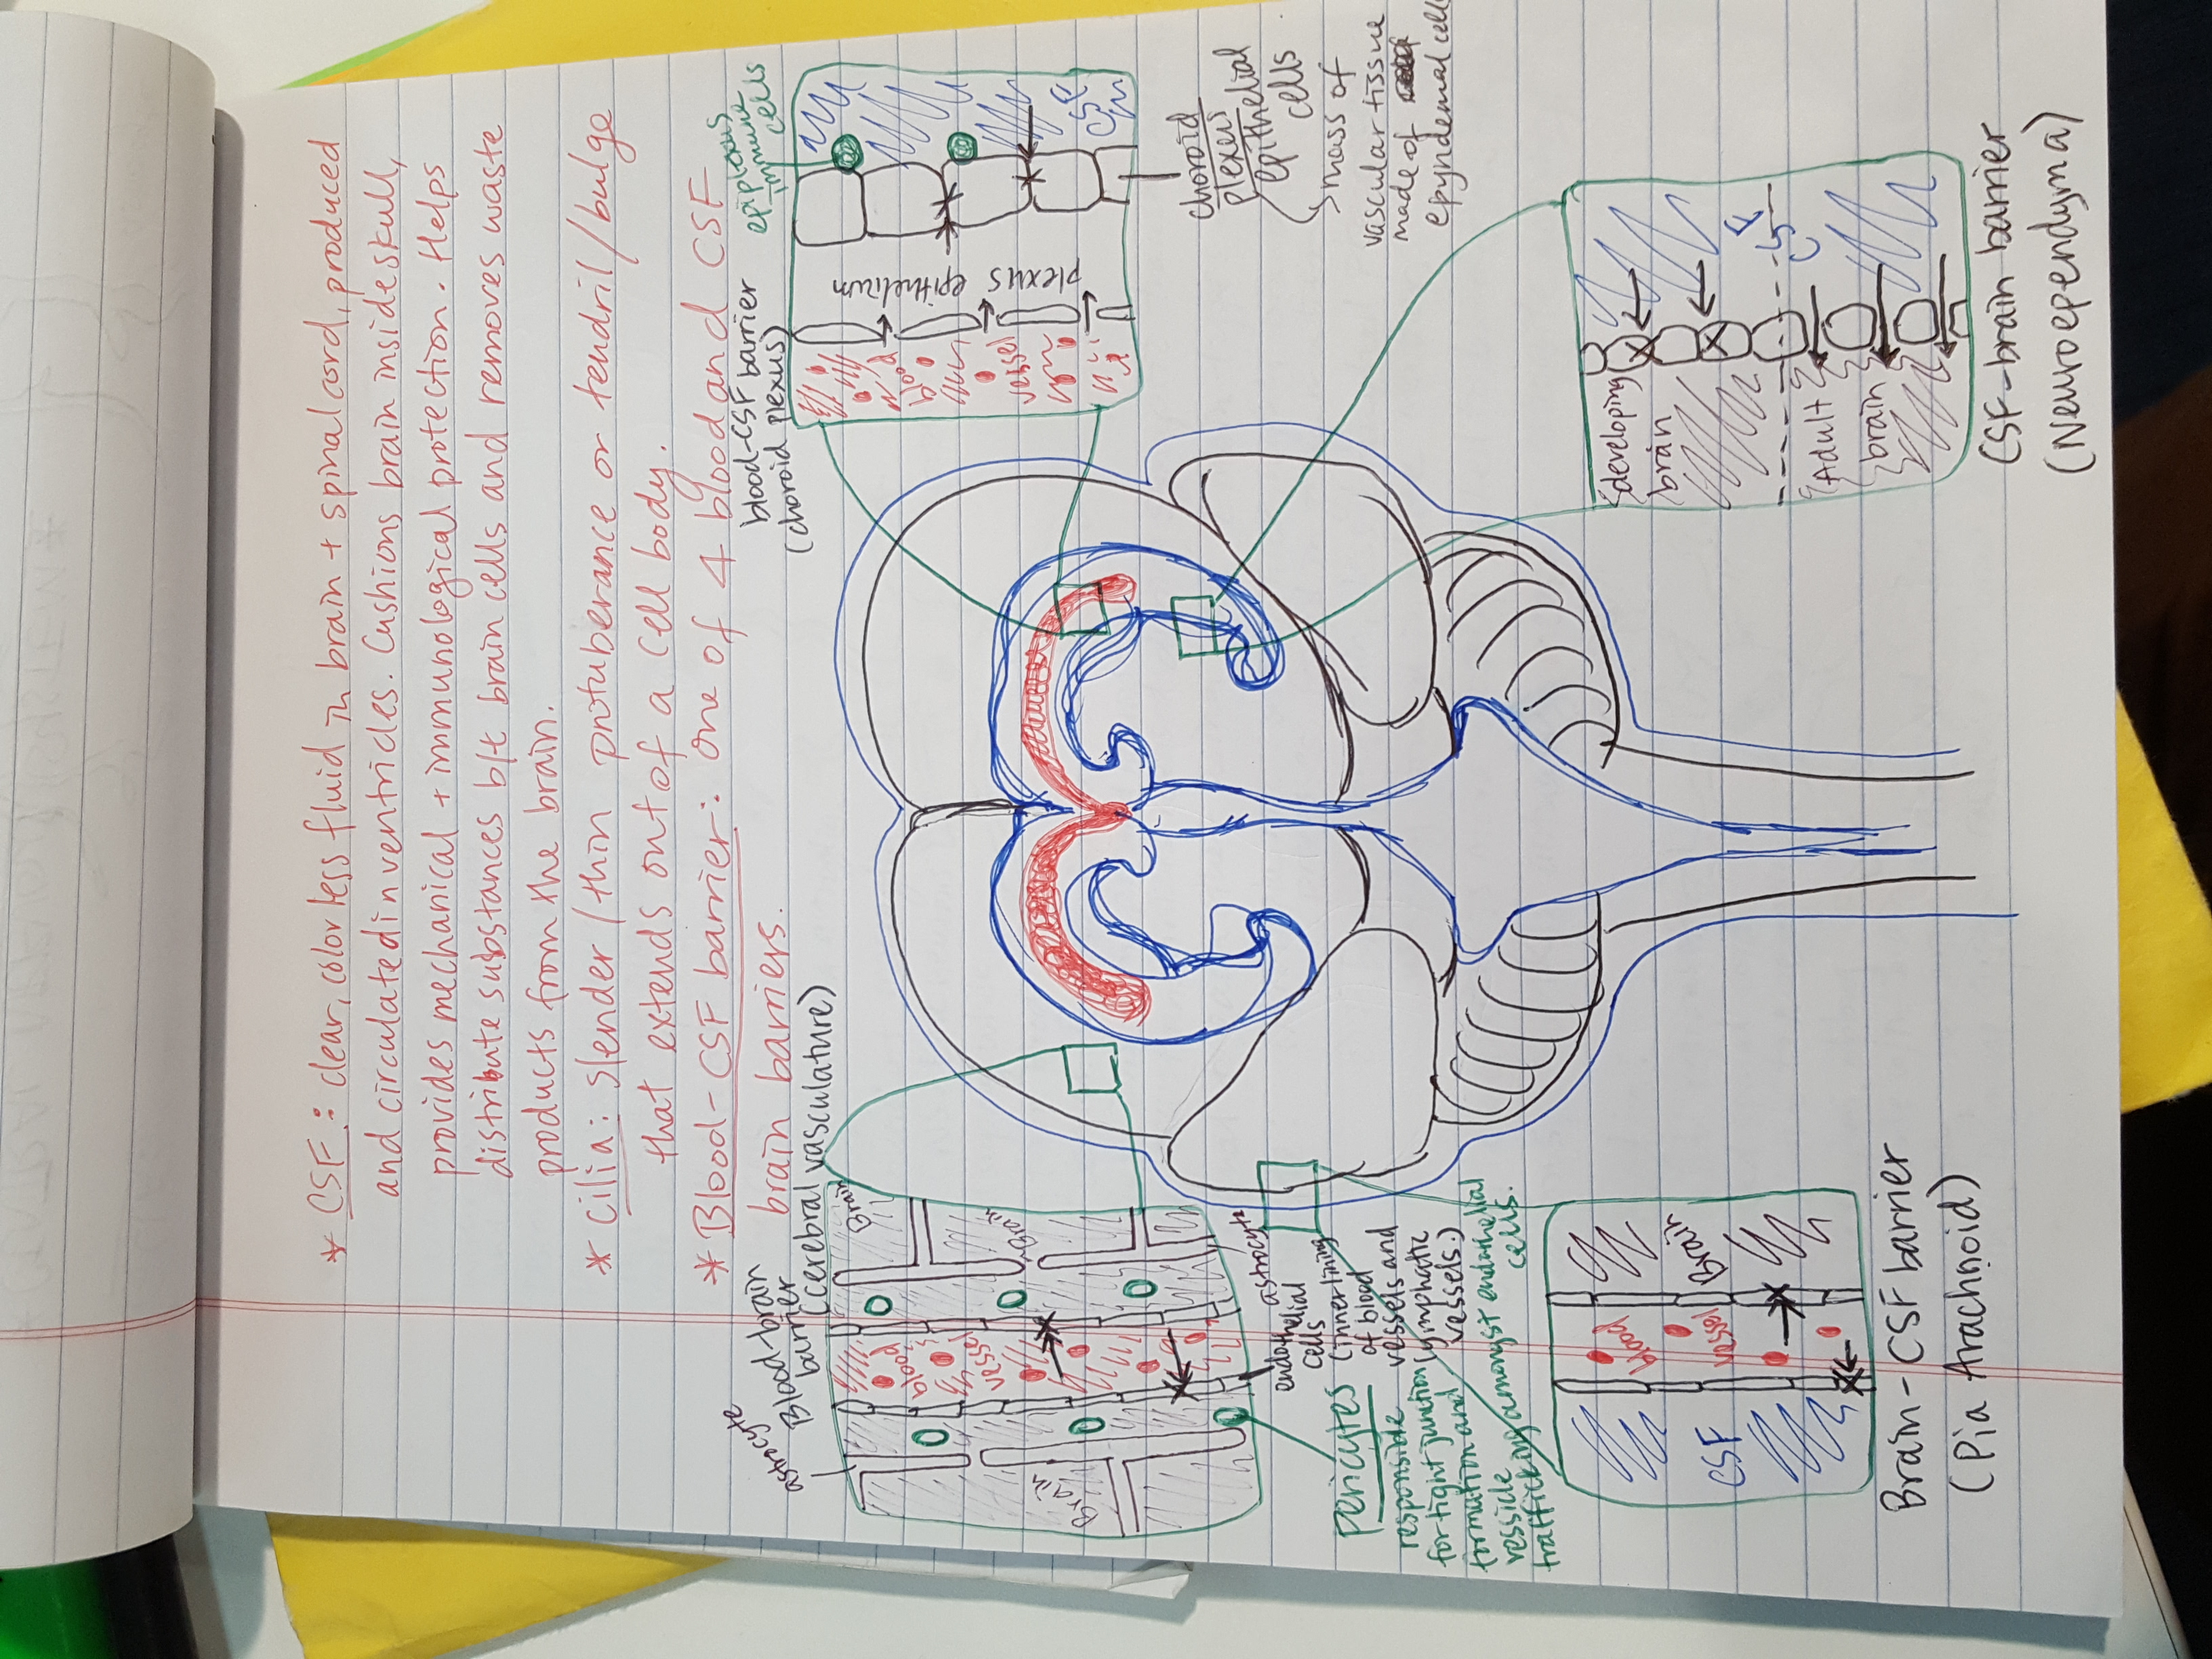 * CSF: clear, colorless fluid in brain + spinal cord, produced
and circulated in ventricles. Cushions brain inside skull,
provides mechanical + immunological protection. Helps
distribute substances b/t brain cells and removes waste
products from the brain.
* Cilia: slender/thin protuberance or tendril/bulge
that extends out of a cell body.
* Blood-CSF barrier: one of 4 blood and CSF
brain barriers.
astrocyte
Blood-brain
barrier
(cerebral vasculature)
Brain
blood
vessel
Brain
Brain
astrocyte
endothelial
cells
(inner lining
of blood
vessels and
lymphatic
vessels.)
Pericytes
responsible
for tight junction
formation and
vessicle
trafficking amongst endothelial
cells.
blood-CSF barrier
(choroid plexus)
epiplexus
immune
cells
blood
vessel
plexus epithelium
CSF
choroid
plexus
epithelial
cells
mass of
vascular tissue
made of
epyndemal cells
CSF
blood
vessel
Brain
Brain-CSF barrier
(Pia Arachnoid)
developing
brain
CSF
Adult
brain
CSF-brain barrier
(Neuroependyma)